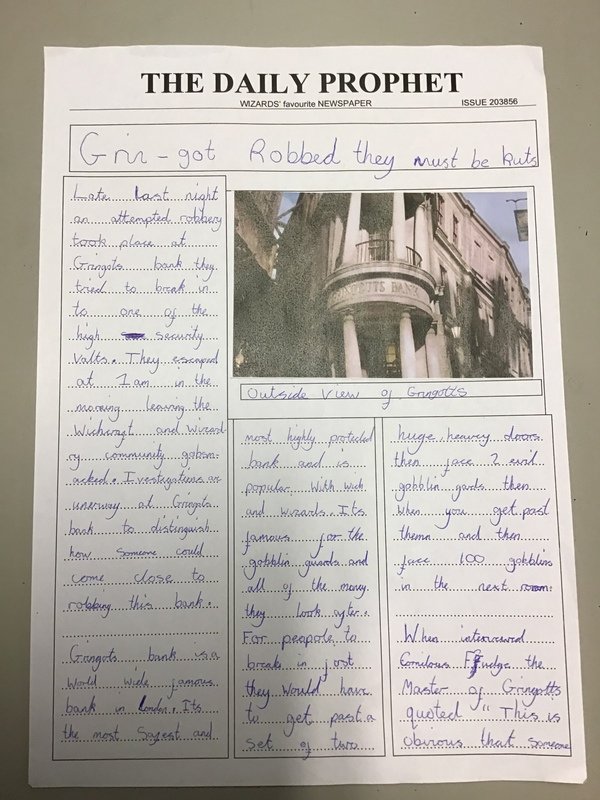 THE DAILY PROPHET
WIZARDS' favourite NEWSPAPER
ISSUE 203856
Grin-got Robbed they must be kuts
Late last night
an attempted robbery
took place at
Gringots bank they
tried to break in
to one of the
high security
Valts. They escaped
at 1am in the
morning leaving the
Wichcrazt and Wizard
ry community gobsm-
acked. Investigations are
underway at Gringots
bank to distinguish
how Someone could
come close to
robbing this bank.
Gringots bank is a
World wide famous
bank in London. Its
the most Safest and
Outside View of Gringotts
most highly protected
bank and is
popular With wich
and wizards. Its
famous for the
gobblin guards and
all of the money
they look after.
For peapole to
break in just
they Would have
to get past a
set of two
huge, heavey doors
then face 2 evil
gobblin gards then
when you get past
themn and then
face 100 gobblins
in the next room.
When interviewed
Cornilous Fudge the
Master of Gringotts
quoted " This is
obvious that Someone